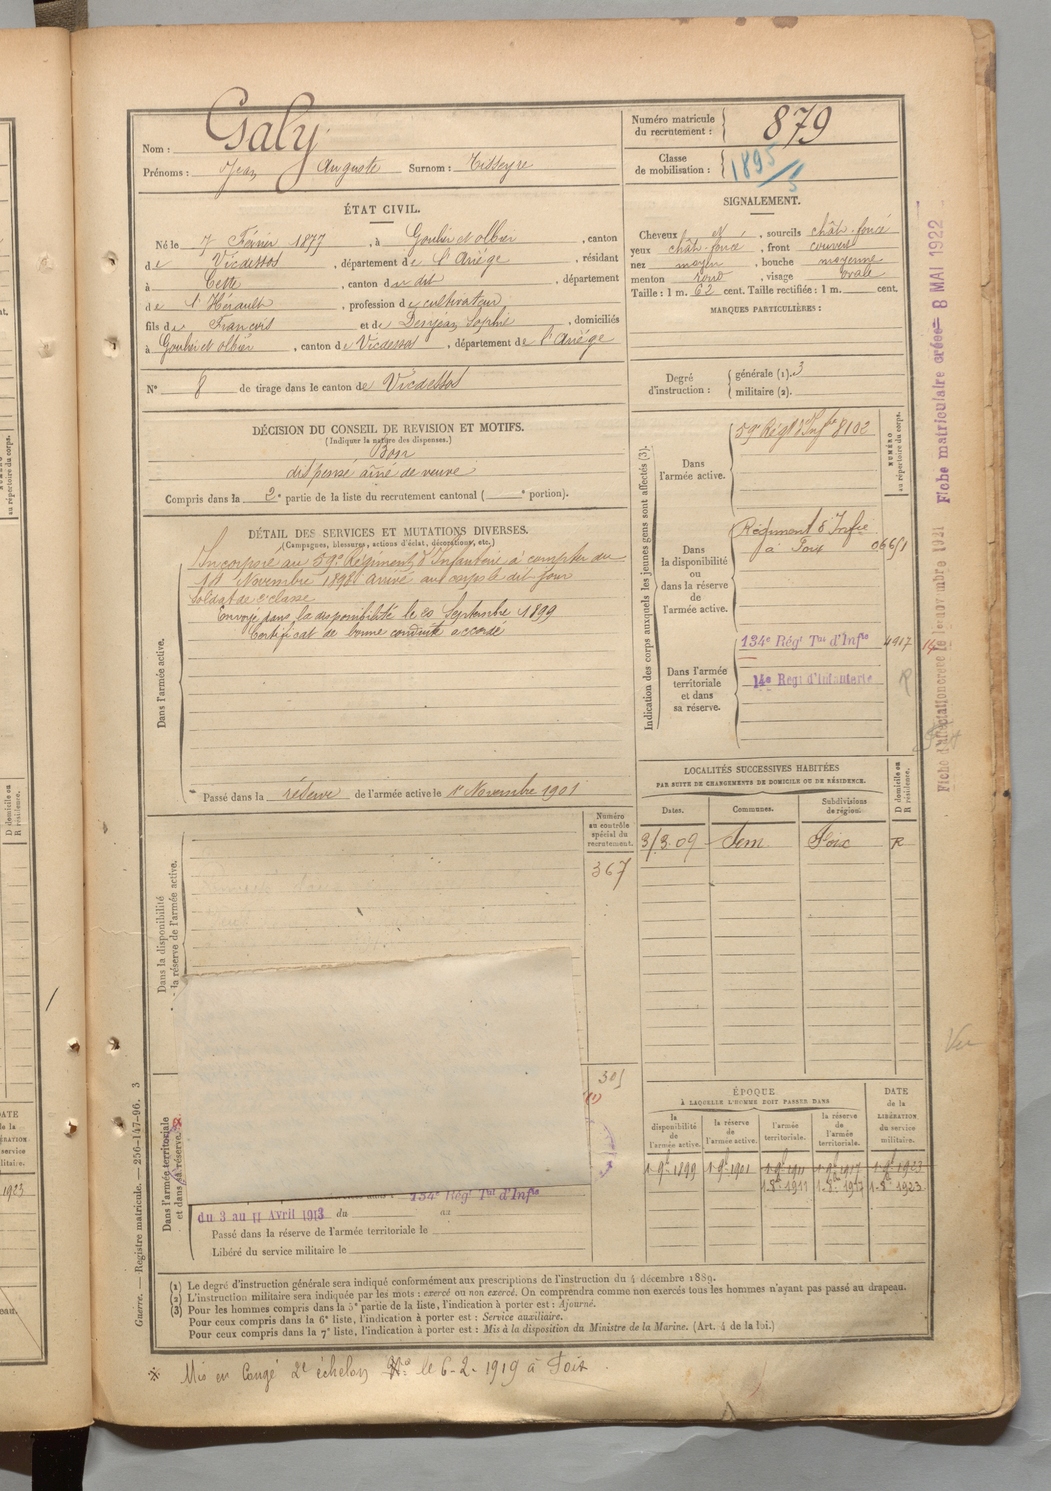 Nom : Galy
Prénoms : Jean Auguste Surnom : Tisseyre
Numéro matricule du recrutement : 879
Classe de mobilisation : 1895
ÉTAT CIVIL.
Né le 7 Février 1877, à Goulier et Olbier, canton
de Vicdessos, département de l'Ariége, résidant
à Cette, canton du dit, département
de l'Hérault, profession de cultivateur,
fils de François et de Desjean Sophie, domiciliés
à Goulier et Olbier, canton de Vicdessos, département de l'Ariége
N° 8 de tirage dans le canton de Vicdessos
SIGNALEMENT.
Cheveux et, sourcils chât. foncé
yeux chât. foncé, front couvert
nez moyen, bouche moyenne
menton rond, visage ovale
Taille : 1 m. 62 cent. Taille rectifiée : 1 m. cent.
MARQUES PARTICULIÈRES :
Degré d'instruction : générale (1). 3
militaire (2).
DÉCISION DU CONSEIL DE REVISION ET MOTIFS.
(Indiquer la nature des dispenses.)
Bon
dispensé aîné de veuve
Compris dans la 2e partie de la liste du recrutement cantonal ( e portion).
DÉTAIL DES SERVICES ET MUTATIONS DIVERSES.
(Campagnes, blessures, actions d'éclat, décorations, etc.)
Dans l'armée active.
Incorporé au 59e Régiment d'Infanterie à compter du
14 Novembre 1898 arrivé au corps le dit jour
soldat de 2e classe
Envoyé dans la disponibilité le 20 Septembre 1899
Certificat de bonne conduite accordé
Passé dans la réserve de l'armée active le 1er Novembre 1901
Indication des corps auxquels les jeunes gens sont affectés (3).
NUMÉRO au répertoire du corps.
Dans l'armée active.
59e Régt d'Infie 8102
Dans la disponibilité ou dans la réserve de l'armée active.
Régiment d'Infie
à Foix 0665/1
Dans l'armée territoriale et dans sa réserve.
134e Régt Tal d'Infie 4917
14e Regt d'Infanterie R
LOCALITÉS SUCCESSIVES HABITÉES
PAR SUITE DE CHANGEMENTS DE DOMICILE OU DE RÉSIDENCE.
Dates. Communes. Subdivisions de région. D domicile ou R résidence.
3/3.09 Sem Foix R
Dans la disponibilité
la réserve de l'armée active.
Numéro au contrôle spécial du recrutement.
367
301
(1)
Dans l'armée territoriale et dans sa réserve.
134e Régt Tal d'Infie
du 3 au 11 Avril 1913 du au
Passé dans la réserve de l'armée territoriale le
Libéré du service militaire le
ÉPOQUE
À LAQUELLE L'HOMME DOIT PASSER DANS
la disponibilité de l'armée active.
la réserve de l'armée active.
l'armée territoriale.
la réserve de l'armée territoriale.
DATE de la LIBÉRATION du service militaire.
1-9bre 1899 1-9bre 1901 1-9bre 1911 1-9bre 1917 1-9bre 1923
1-8bre 1911 1-8bre 1917 1-8bre 1923
(1) Le degré d'instruction générale sera indiqué conformément aux prescriptions de l'instruction du 4 décembre 1889.
(2) L'instruction militaire sera indiquée par les mots : exercé ou non exercé. On comprendra comme non exercés tous les hommes n'ayant pas passé au drapeau.
(3) Pour les hommes compris dans la 5e partie de la liste, l'indication à porter est : Ajourné.
Pour ceux compris dans la 6e liste, l'indication à porter est : Service auxiliaire.
Pour ceux compris dans la 7e liste, l'indication à porter est : Mis à la disposition du Ministre de la Marine. (Art. 4 de la loi.)
Mis en Congé 2e échelon le 6-2-1919 à Foix.
Guerre. — Registre matricule. — 256-147-96. 3
Fiche matriculaire créée= 8 MAI 1922
Fiche d'affectation créée le 1er novembre 1921
Vu